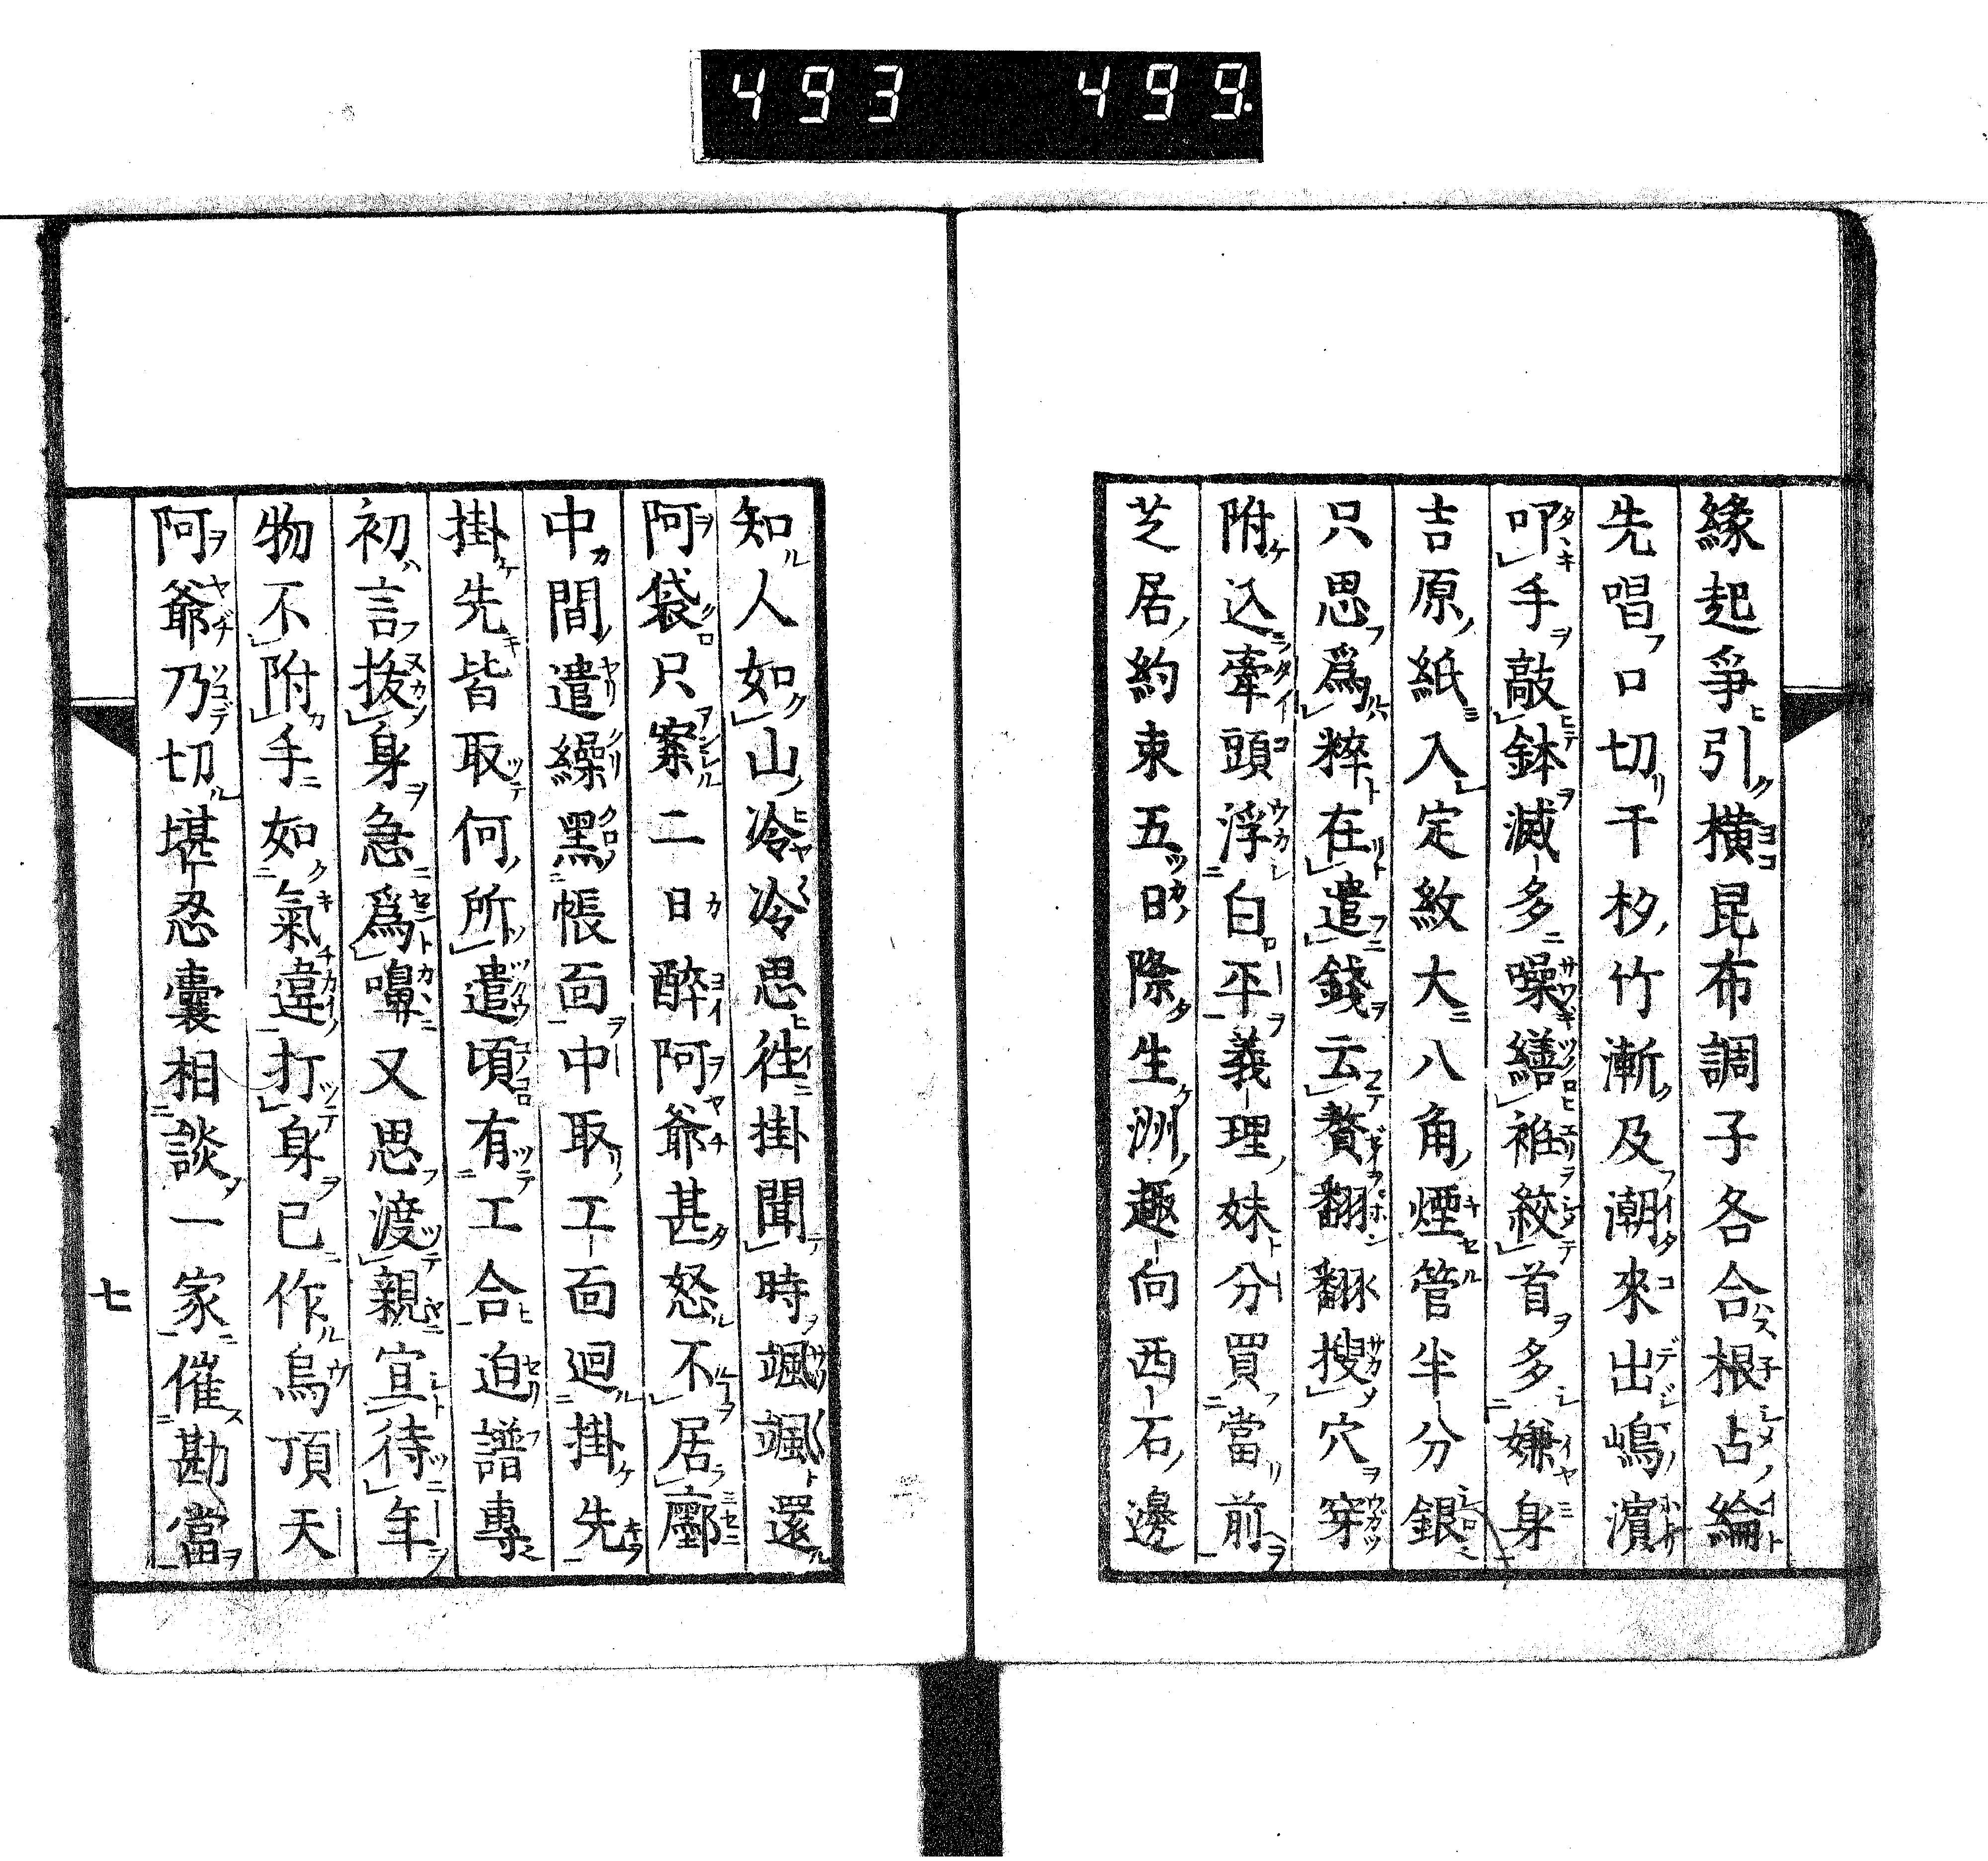 493 499.
縁起爭引横昆布調子各合根占綸
先唱口切干杉竹漸及潮來出嶋濱
叩手敲鉢滅多噪繕袵絞首多嫌身
吉原紙入定紋大八角煙管半分銀
只思爲粹在遣錢云贅翻翻搜穴穿
附込牽頭浮白平義理妹分買當前
芝居約束五日際生洲趣向西石邊
知人如山冷冷思徃掛聞時颯颯還
阿袋只案二日醉阿爺甚怒不居鄽
中間遣繰黑帳面中取工面迴掛先
掛先皆取何所遣頃有工合迫譜專
初言拔身急爲嚊又思渡親宜待年
物不附手如氣違打身已作烏頂天
阿爺乃切堪忍囊相談一家催勘當
七